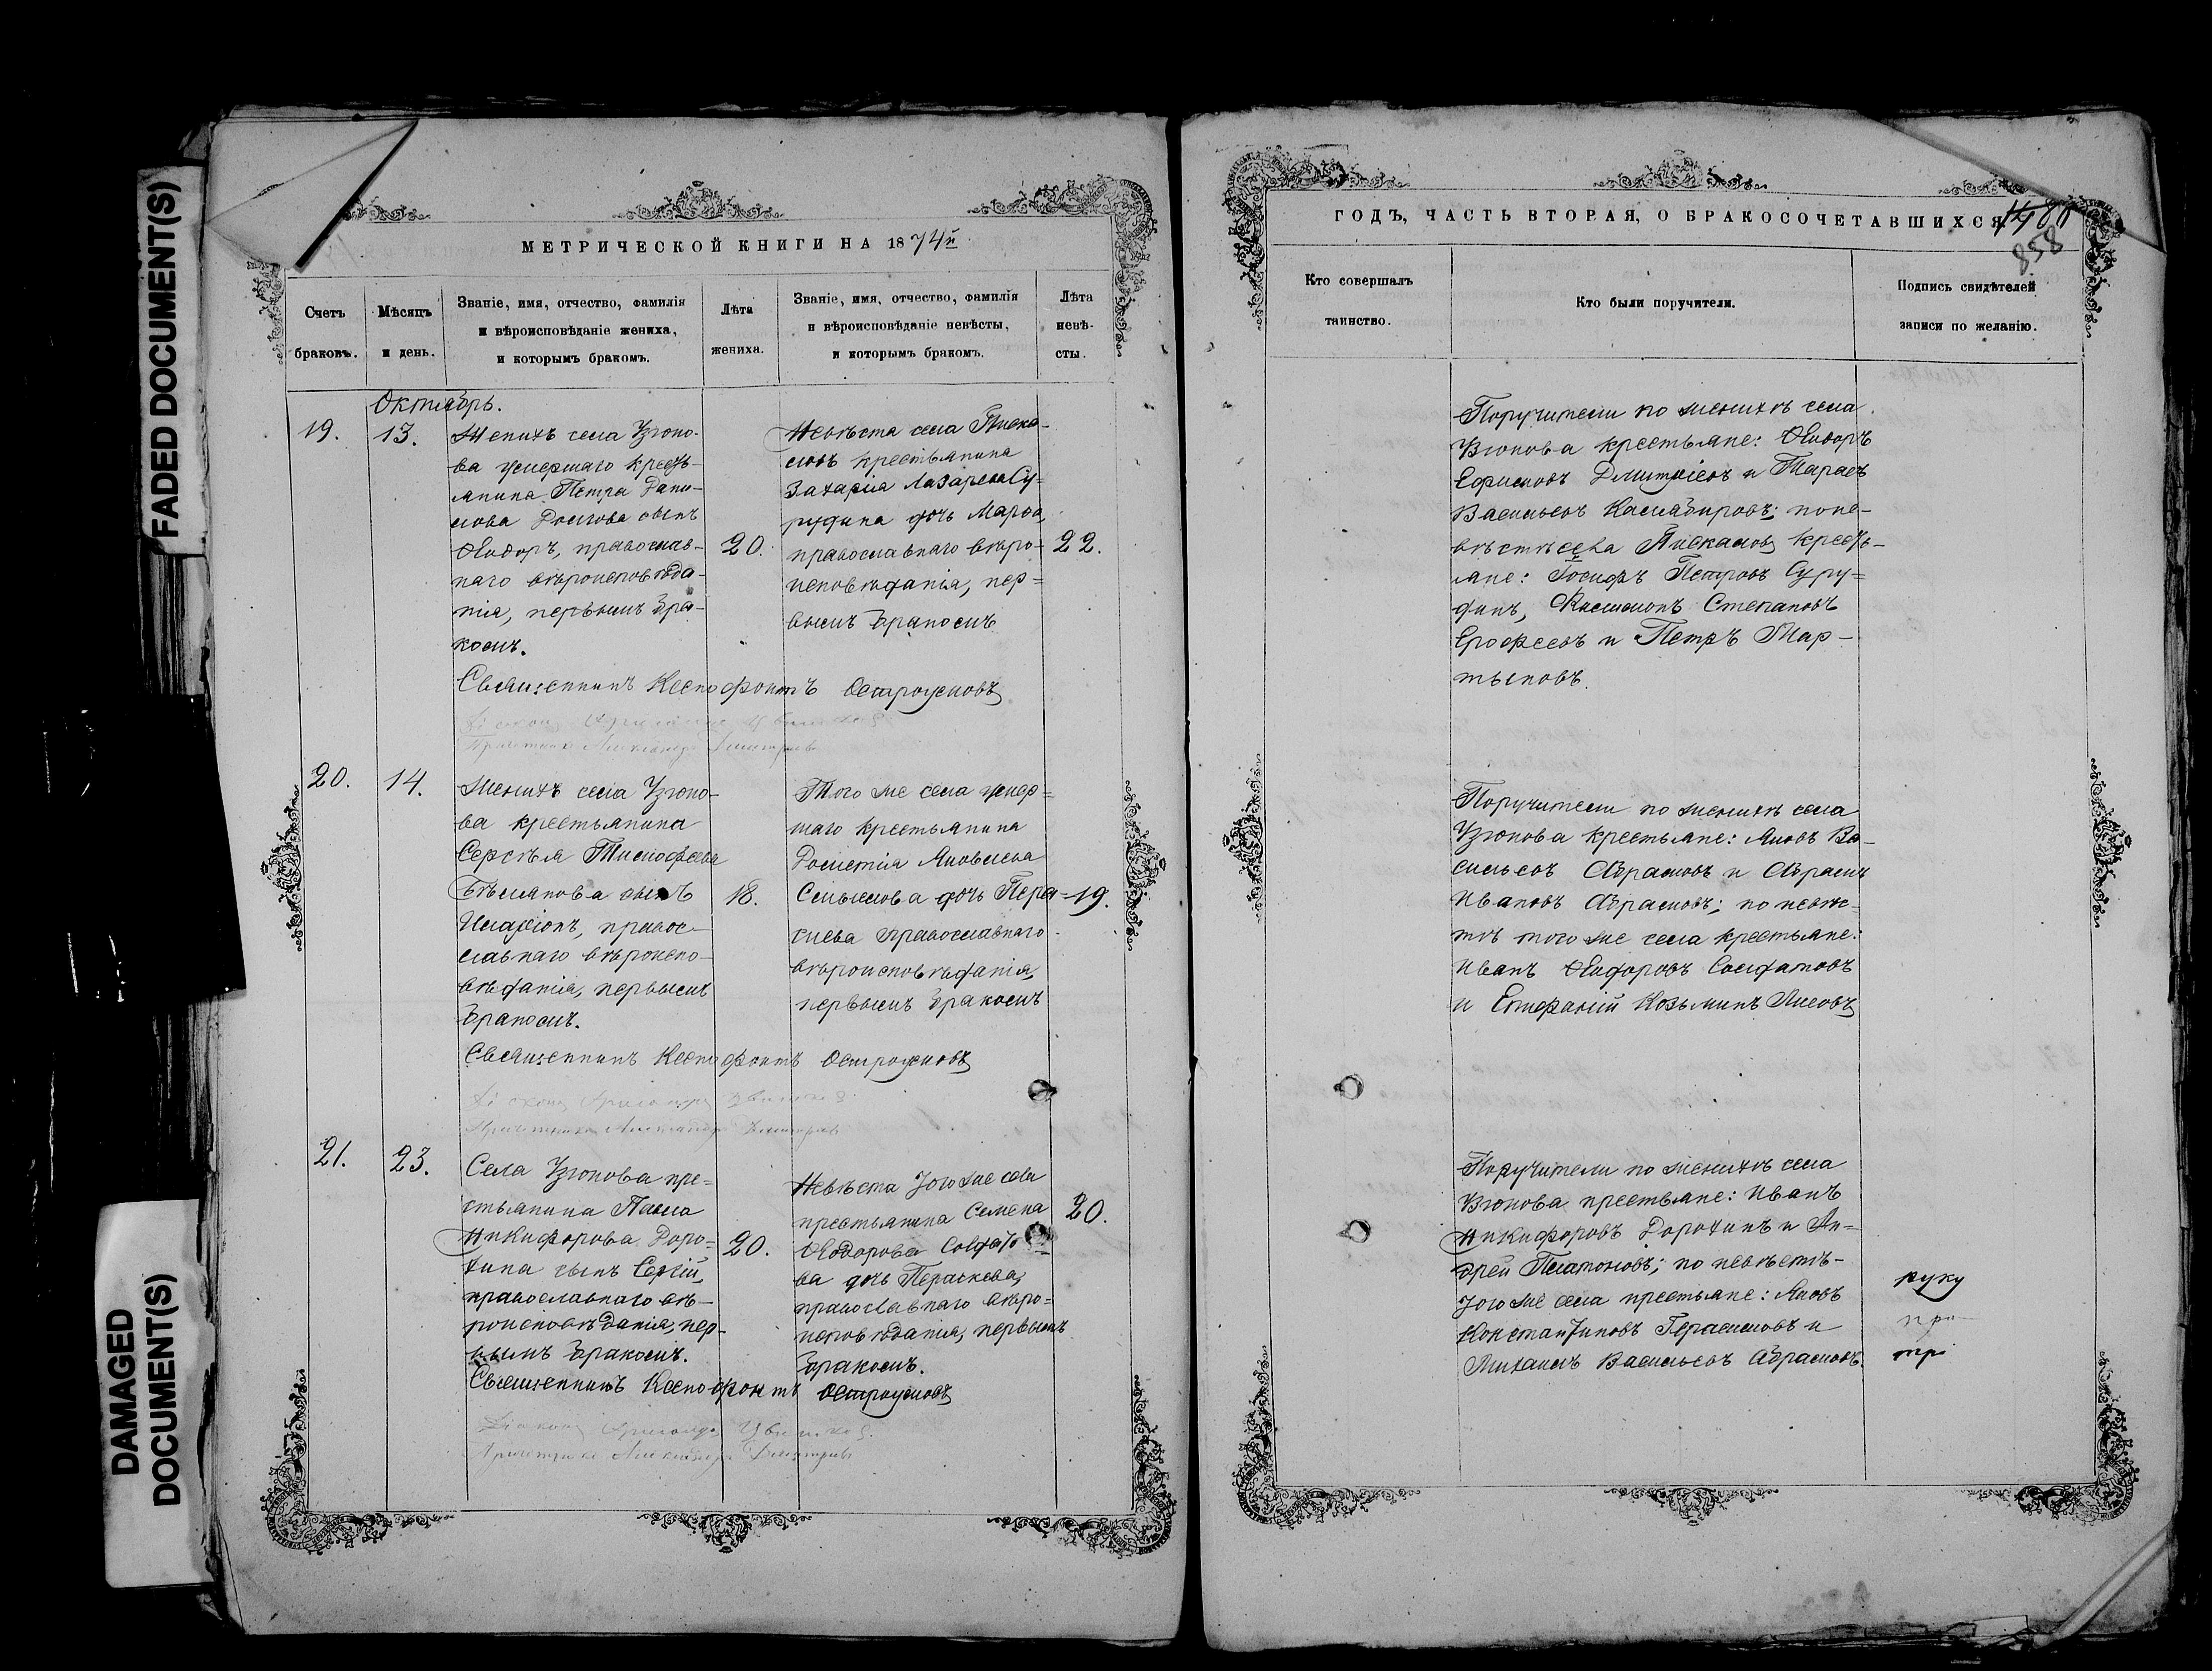 FADED DOCUMENT(S)
DAMAGED
DOCUMENT(S)
МЕТРИЧЕСКОЙ КНИГИ НА 1874й
Счетъ
браковъ.
Мѣсяцъ
и день.
Званіе, имя, отчество, фамилія
и вѣроисповѣданіе жениха,
и которымъ бракомъ.
Лѣта
жениха.
Званіе, имя, отчество, фамилія
и вѣроисповѣданіе невѣсты,
и которымъ бракомъ.
Лѣта
невѣ-
сты.
Октябрь.
19.
13.
Женихъ села Узюко-
ва умершаго кресть-
янина Петра Дани-
лова Долгова сынъ
Ѳеодоръ, православ-
наго вѣроисповѣда-
нія, первымъ бра-
комъ.
20.
Невѣста села Писка-
ловъ крестьянина
Захарія Лазарева Су-
рудина дочь Марѳа,
православнаго вѣро-
исповѣданія, пер=
вымъ бракомъ
22.
Священникъ Ксенофонтъ Остроумовъ
Александръ Димитріевъ
20.
14.
Женихъ села Узюко-
ва крестьянина
Сергѣя Тимофеева
сынъ
Иларіонъ, правос-
лавнаго вѣроиспо-
вѣданія, первымъ
бракомъ.
18.
Того же села умер=
шаго крестьянина
Дометія Яковлева
дочь Пера-
скева православнаго
вѣроисповѣданія,
первымъ бракомъ
19.
Священникъ Ксенофонтъ Остроумовъ
Александръ Димитріевъ
21.
23.
Села Узюкова кре=
стьянина Павла
Никифорова Доро=
хина сынъ Сергій,
православнаго вѣ-
роисповѣданія, пер-
вымъ бракомъ.
20.
Невѣста того же села
крестьянина Семена
Ѳеодорова Солдато
ва дочь Параскева,
православнаго вѣро=
исповѣданія, первымъ
бракомъ.
20.
Священникъ Ксенофонтъ Остроумовъ
Александръ Димитріевъ
ГОДЪ, ЧАСТЬ ВТОРАЯ, О БРАКОСОЧЕТАВШИХСЯ
858
Кто совершалъ
таинство.
Кто были поручители.
Подпись свидѣтелей
записи по желанію.
Поручители по женихѣ села
Узюкова крестьяне: Ѳеодоръ
Ефимовъ Димитріевъ и Тарасъ
Васильевъ по не-
вѣстѣ села Пискаловъ кресть-
яне: Іосифъ Петровъ Суру=
динъ, Степановъ
Ерофеевъ и Петръ Мар-
тыновъ.
Поручители по женихѣ села
Узюкова крестьяне: Яковъ Ва-
сильевъ Абрамовъ и Абрамъ
Ивановъ Абрамовъ; по невѣс-
тѣ того же села крестьяне:
Иванъ Ѳеодоровъ Солдатовъ
и Епифаній Козьминъ Лисовъ
Поручители по женихѣ села
Узюкова крестьяне: Иванъ
Никифоровъ Дорохинъ и Ан=
дрей Платоновъ; по невѣстѣ-
того же села крестьяне: Яковъ
Константиновъ Герасимовъ и
Михаилъ Васильевъ Абрамовъ.
руку